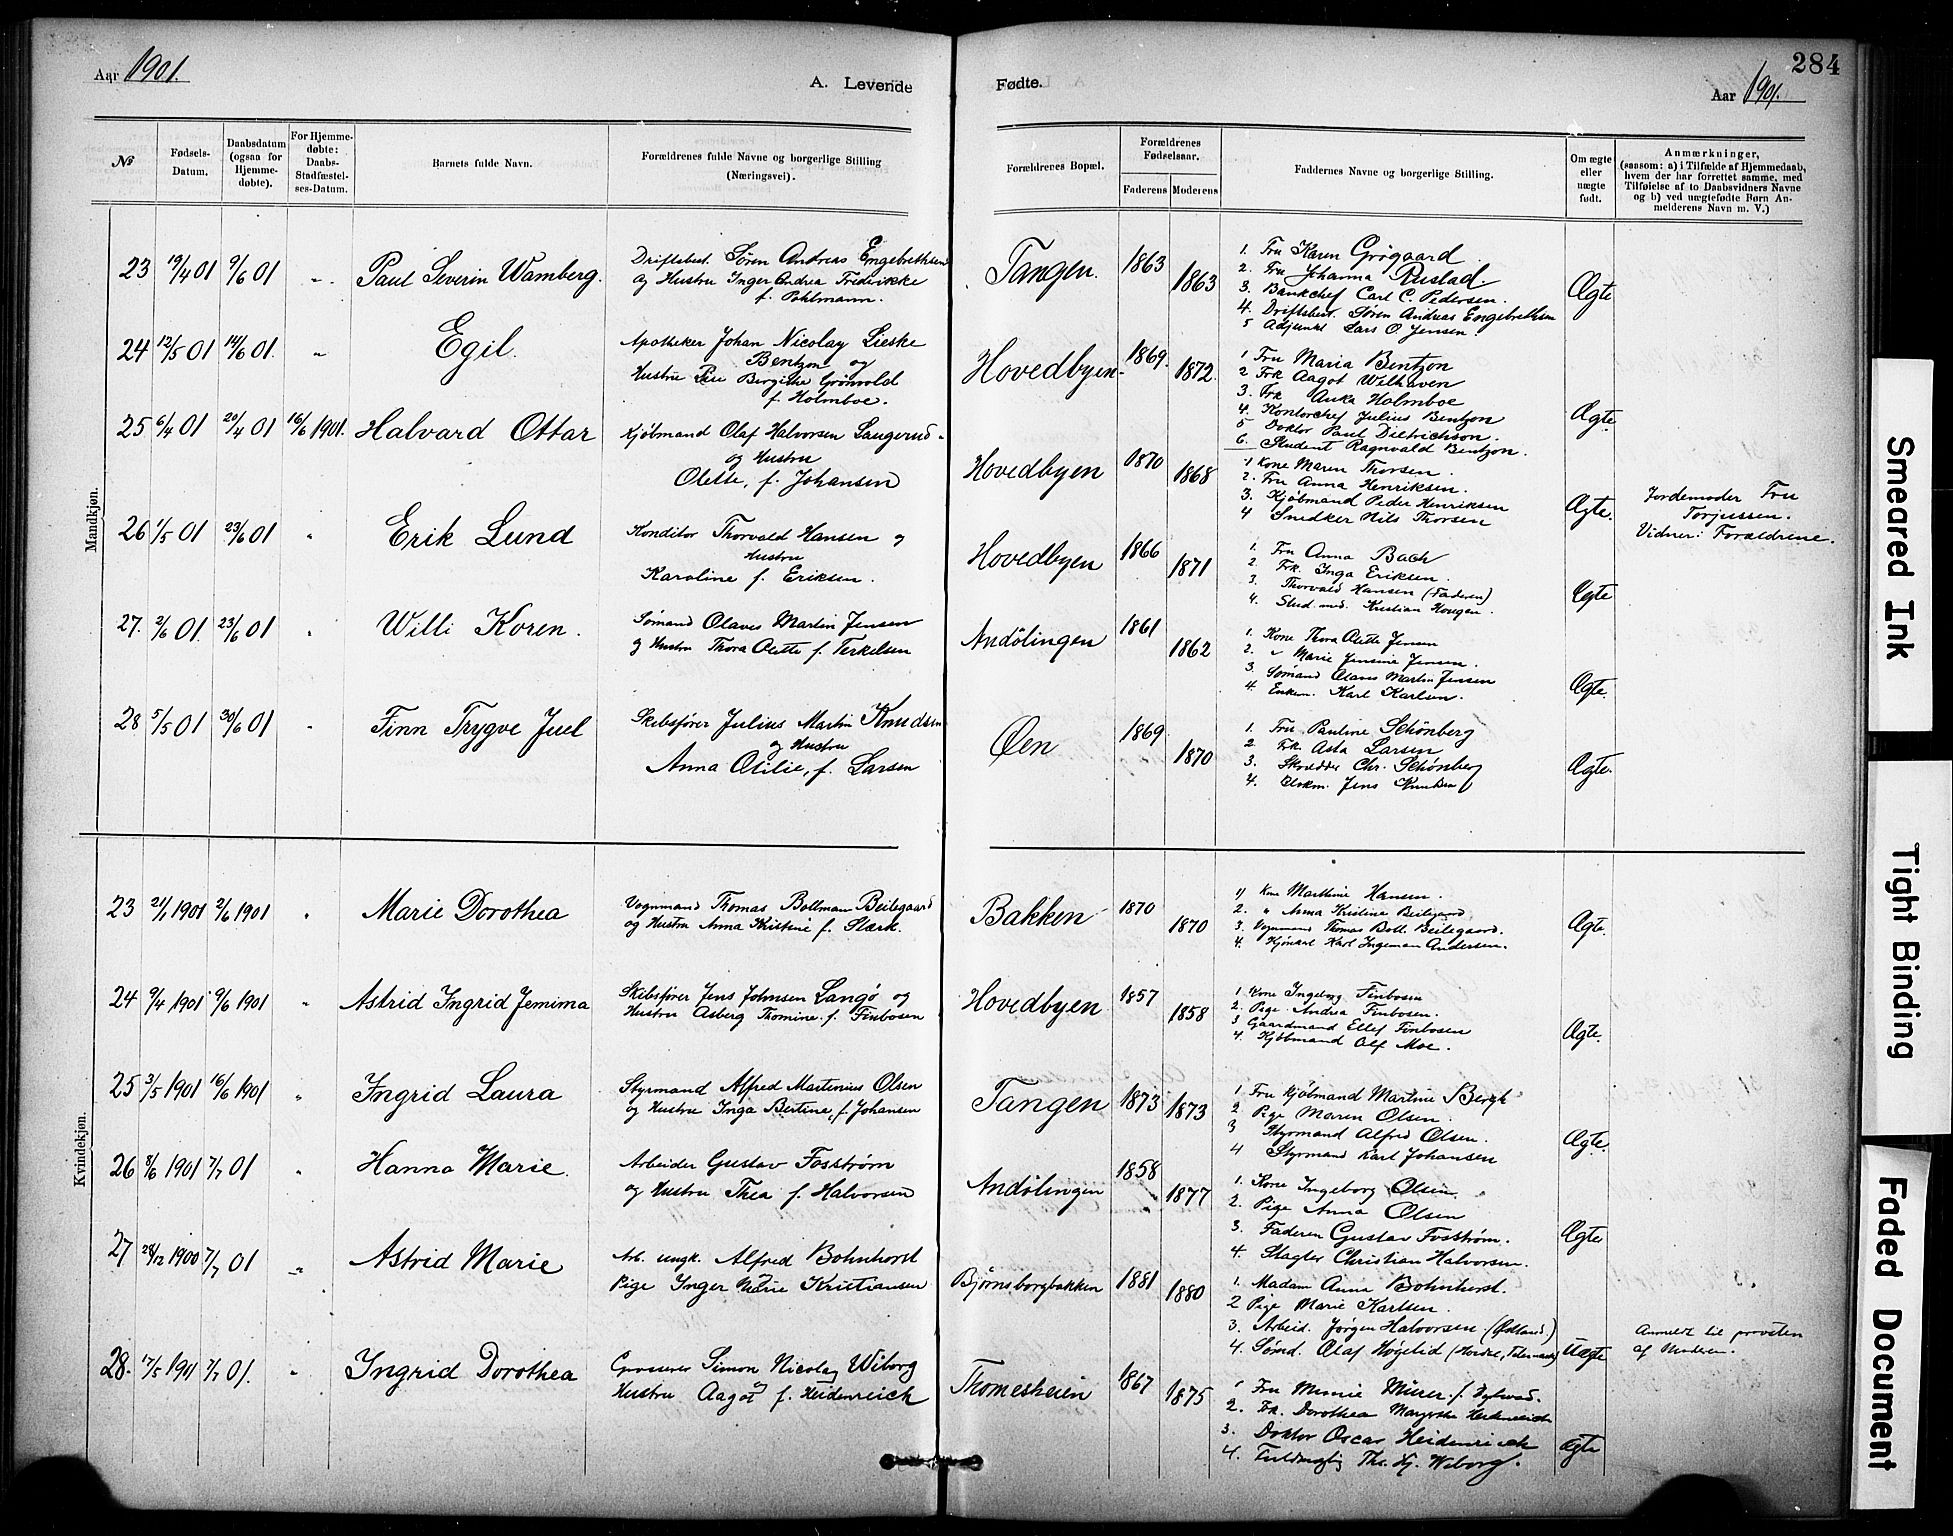 Aar 1901.
A. Levende
Fødte.
284
Aar 1901.
№
Fødsels-
Datum.
Daabsdatum
(ogsaa for
Hjemme-
døbte).
For Hjemme-
døbte:
Daabs-
Stadfæstel-
ses-Datum.
Barnets fulde Navn.
Forældrenes fulde Navne og borgerlige Stilling
(Næringsvei).
Forældrenes Bopæl.
Forældrenes
Fødselsaar.
Faderens Moderens
Faddernes Navne og borgerlige Stilling.
Om ægte
eller
uægte
født.
Anmærkninger,
(saasom: a) i Tilfælde af Hjemmedaab,
hvem der har forrettet samme, med
Tilføielse af to Daabsvidners Navne
og b) ved uægtefødte Børn An-
melderens Navn m. V.)
Mandkjøn.
23 19/4 01 9/6 01 " Paul Severin Wamberg.
Driftsbest. Søren Andreas Engebrethsen
og Hustru Inger Andrea Frederikke
f. Pohlmann.
Tangen. 1863 1863
1. Fru Karen Grøgaard
2. Fru Johanna Rustad.
3. Bankchef Carl C. Pedersen.
4. Driftsbest. Søren Andreas Engebrethsen
5 Adjunkt Lars O. Jensen.
Ægte
24 12/5 01 14/6 01. " Egil.
Apotheker Johan Nicolay Lieske
Bentzon og
Hustru Birgitte Grønvold
f. Holmboe.
Hovedbyen 1869. 1872.
1 Fru Maria Bentzon
2 Frk Aagot Welhaven
3. Frk Anka Holmboe
4. Kontorchef Julius Bentzon
5 Doktor Paul Dietrichson.
6. Student Ragnvald Bentzon.
Ægte.
25 6/4 01 20/4 01 16/6 1901. Halvard Ottar
Kjøbmand Olaf Halvorsen Langerud
og Hustru
Olette, f. Johansen
Hovedbyen 1870 1868
1 Kone Maren Thorsen.
2. Fru Anna Henriksen.
3. Kjøbmand Peder Henriksen
4 Snedker Nils Thorsen
Ægte.
Jordemoder Fru
Torjussen.
Vidner: Forældrene.
26 1/5 01 23/6 01 " Erik Lund
Konditor Thorvald Hansen og
Hustru
Karoline f. Eriksen.
Hovedbyen 1866 1871
1. Fru Anna Bach
2. Frk. Inga Eriksen.
3. Thorvald Hansen (Faderen)
4. Stud. med. Kristian Hougen.
Ægte
27. 2/6 01. 23/6 01 " Willi Koren.
Sømand Olaves Martin Jensen
og Hustru Thora Olette f. Terkelsen
Andølingen 1861 1862
1. Kone Thora Olette Jensen
2. " Marie Jensine Jensen.
3. Sømand Olaves Martin Jensen
4. Enkem. Karl Karlsen.
Ægte.
28 5/5 01 30/6 01 " Finn Trygve Juel
Skibsfører Julius Martin Knudsen
og Hustru
Anna Otilie, f. Larsen
Øen 1869 1870
1. Fru Pauline Schønberg
2. Frk. Asta Larsen
3. Chr. Schønberg
4. Jens Knudsen
Ægte.
Kvindekjøn.
23 21/1 1901 2/6 1901 " Marie Dorothea
Vognmand Thomas Bollman Beilegaard
og Hustru Anna Kristine f. Stærk.
Bakken 1870 1870
1) Kone Marthine Hansen.
2. " Anna Kristine Beilegaard
3. Vognmand Thomas Boll. Beilegaard.
4. Karl Ingeman Andersen.
Ægte.
24 9/4 1901 9/6 1901 " Astrid Ingrid Jemima
Skibsfører Jens Johnsen Langø og
Hustru Asberg Thomine f. Finbosen
Hovedbyen 1857 1858
1. Kone Ingeborg Finbosen
2. Pige Andrea Finbosen.
3 Gaardmand Ellef Finbosen
4. Kjøbmand Alf Moe.
Ægte.
25 3/5 1901 16/6 1901 " Ingrid Laura
Styrmand Alfred Martinius Olsen
og Hustru Inga Bertine, f. Johansen
Tangen 1873 1873
1 Fru Kjøbmand Martine Bergk
2 Pige Maren Olsen.
3 Styrmand Alfred Olsen.
4 Styrmand Karl Johansen
Ægte.
26 8/6 1901 7/7 01 " Hanna Marie.
Arbeider Gustav Fosstrøm
og Hustru Thea f. Halvorsen
Andølingen 1858 1877
1. Kone Ingeborg Olsen.
2. Pige Anna Olsen
3. Faderen Gustav Fosstrøm.
4. Slagter Christian Halvorsen.
Ægte
27 28/12 1900 7/7 01 " Astrid Marie
Arb. ungk. Alfred Bohnhorst
Pige Inger Marie Kristiansen
Bjørnsborgbakken 1881 1880
1. Madam Anna Bohnhorst.
2 Pige Marie Karlsen.
3. Arbeid. Jørgen Halvorsen (Østland)
4. Sømd. Olaf Høgelid
Uægte
Anmeldt til provsten
af Moderen.
28. 17/5 1901 7/7 01. " Ingrid Dorothea
Grosserer Simon Nicolay Wiborg
og
Hustru Aagot f. Heidenreich
Thomesheien 1867 1875
1 Fru Minnie Mürer f.
2. Frk. Dorothea Margrethe Heidenreich
3. Doktor Oscar Heidenreich
4. Fuldmægtig Ths. Hj. Wiborg.
Ægte
Smeared Ink
Tight Binding
Faded Document